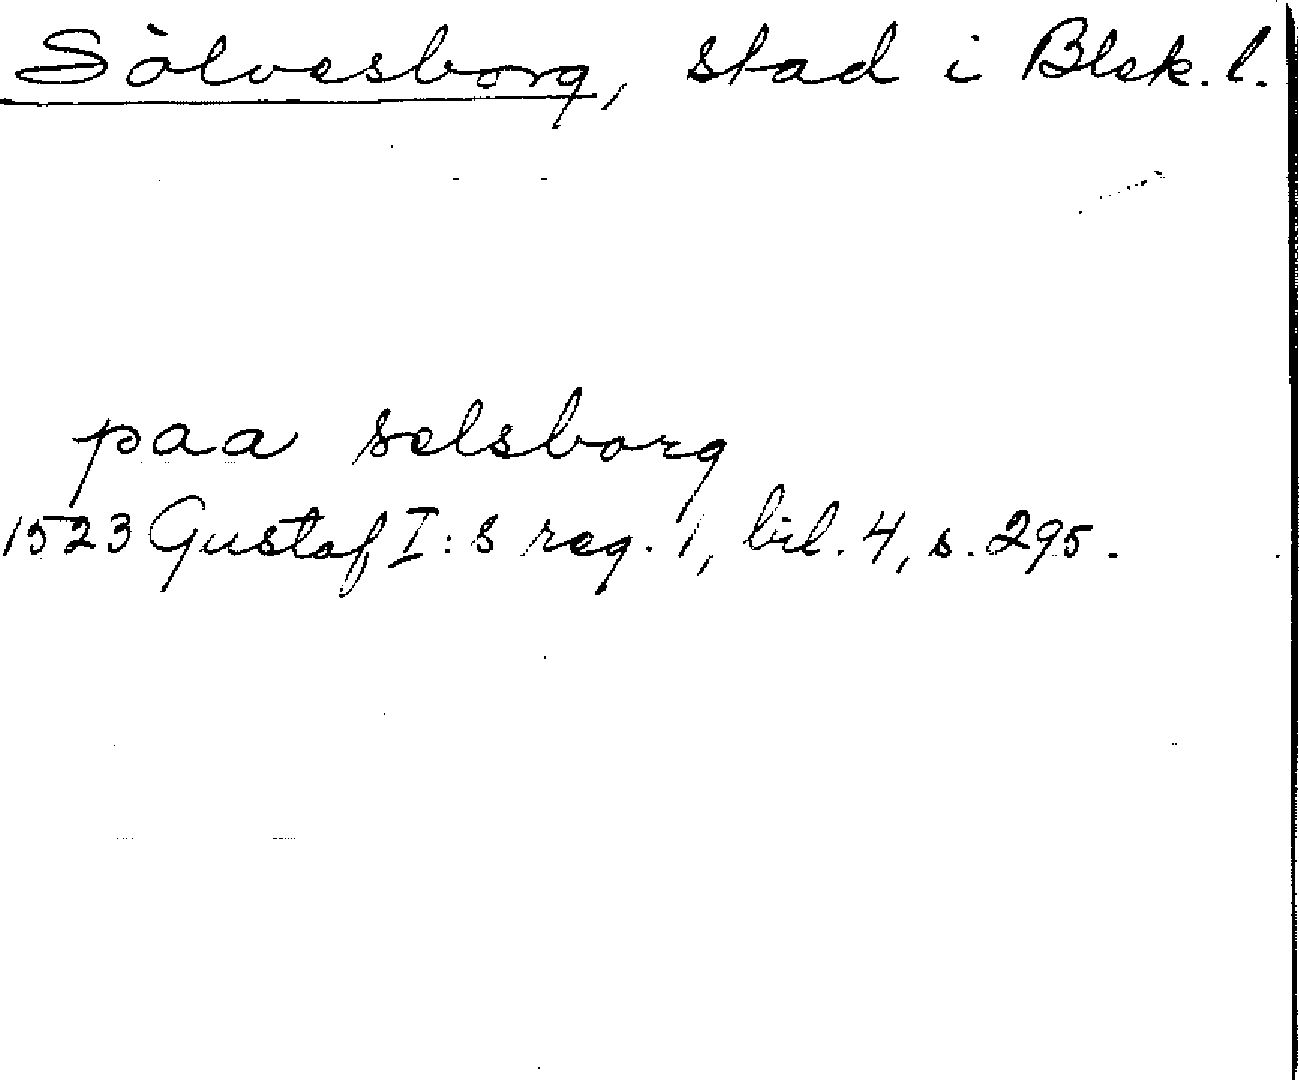 Sölvesborg, stad i Blek. l.
paa selsborg
1523 Gustaf I:s reg. 1, bil. 4, s. 295.